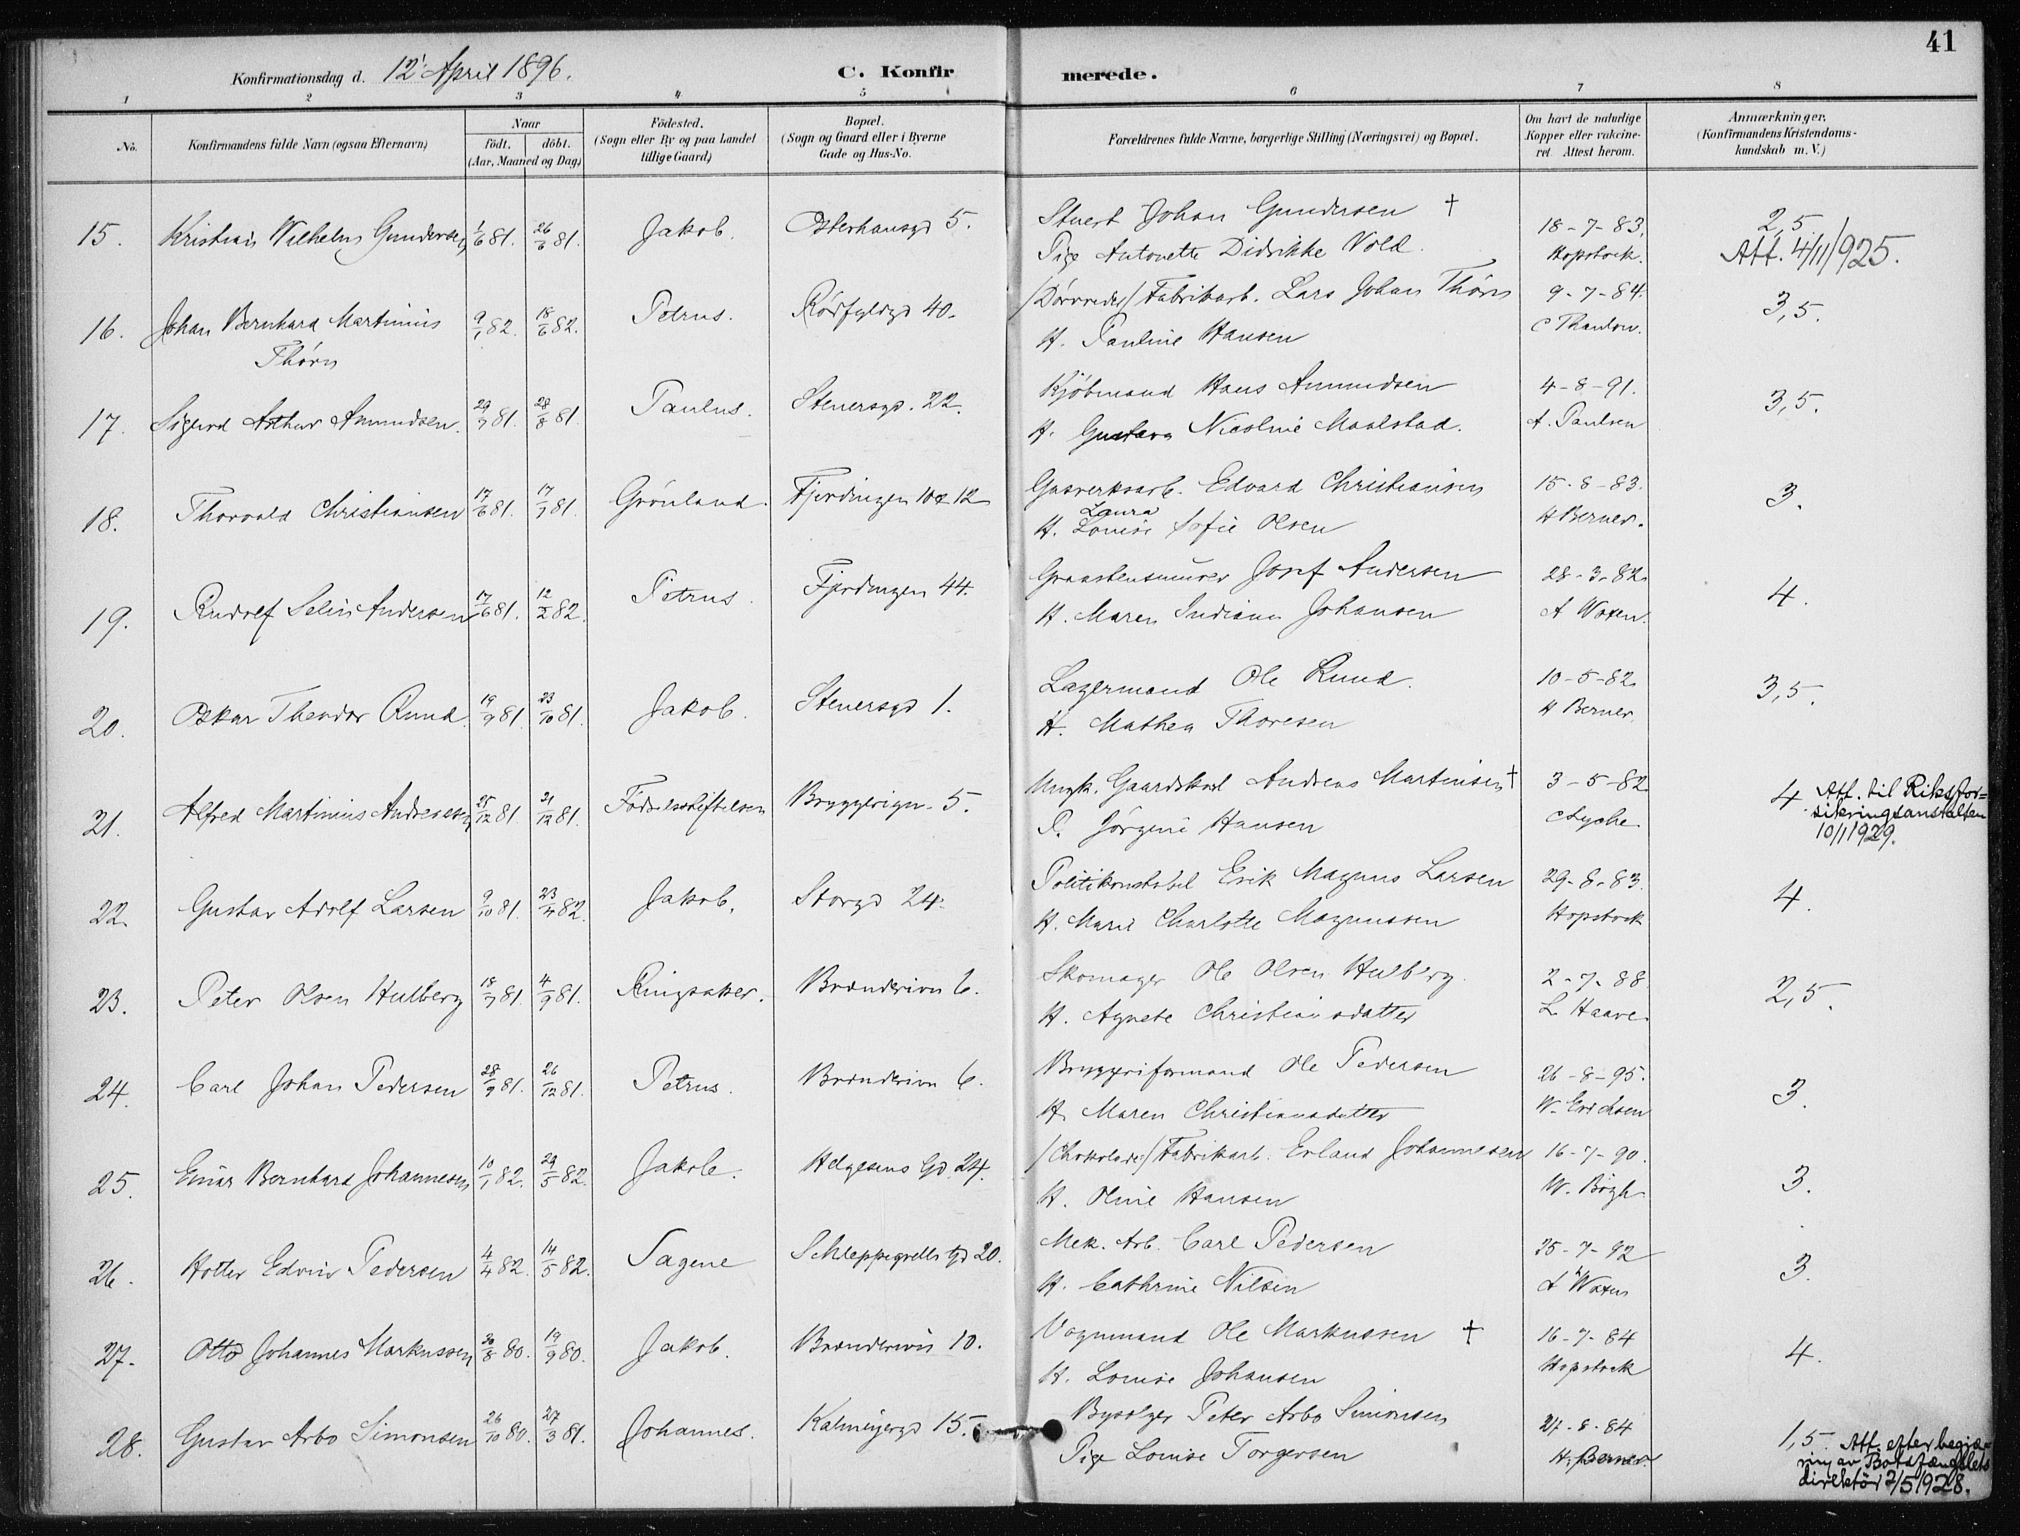 41
Konfirmationsdag d. 12' April 1896. C. Konfirmerede.
1 2 3 4 5 6 7 8
No. Konfirmandens fulde Navn (ogsaa Efternavn) Naar født. døbt. (Aar, Maaned og Dag) Fødested. (Sogn eller By og paa Landet tillige Gaard) Bopæl. (Sogn og Gaard eller i Byerne Gade og Hus-No. Forældrenes fulde Navne, borgerlige Stilling (Næringsvei) og Bopæl. Om havt de naturlige Kopper eller vakcineret. Attest herom. Anmærkninger. (Konfirmandens Kristendomskundskab m. V.)
15. Kristian Wilhelm Gundersen 1/6 81. 26/6 81. Jakob. Osterhausgd 5. Stuert Johan Gundersen † 18-7-83. 2,5.
Pige Antonette Didrikke Vold. Hopstock. Att. 4/11/925.
16. Johan Bernhard Martinius 9/1 82. 18/6 82. Petrus. Rødfyldgd 40. /Dørvreder/ Fabrikarb. Lars Johan Thørn 9-7-84. 3,5.
Thørn H. Pauline Hansen C Thaulow.
17. Sigurd Arthur Amundsen. 29/7 81. 28/8 81. Paulus. Stenersgd. 22. Kjøbmand Hans Amundsen 4-8-91. 3,5.
H. Gustava Nicoline Maalstad. A. Paulsen
18. Thorvald Christiansen 17/6 81. 17/7 81. Grønland. Fjerdingen 10 & 12 Gasverksarb. Edvard Christiansen 15-8-83. 3.
Laura
H. Louise Sofie Olsen H Berner.
19. Rudolf Selius Andersen 17/6 81. 12/2 82. Petrus. Fjerdingen 44. Graastensmurer Josef Andersen 28-3-82. 4.
H. Maren Indiana Johansen A Woxen.
20. Oskar Theodor Ruud. 19/9 81. 23/10 81. Jakob. Stenersgd 1. Lagermand Ole Ruud. 10-5-82. 3,5.
H. Mathea Thoresen H Berner.
21. Alfred Martinius Andreassen 25/12 81. 31/12 81. Fødselsstiftelsen Bryggerign. 5. Ungk. Gaardskarl Andreas Martinsen † 3-5-82 4. Att. til Riksfor=
P. Jørgine Hansen C Lyche. sikringsanstalten
10/1 1929.
22. Gustav Adolf Larsen 9/10 81. 23/4 82. Jakob. Storgd 24. Politikonstabel Erik Magnus Larsen 29-8-83. 4.
H. Marie Charlotte Magnussen Hopstock
23. Peter Olsen Hulberg 18/7 81. 4/9 81. Ringsaker. Brænderivn 6. Skomager Ole Olsen Hulberg. 2-7-88 2,5.
H. Agnete Christiansdatter L. Haave.
24. Carl Johan Pedersen 28/9 81. 26/12 81. Petrus. Brænderivn 6. Bryggeriformand Ole Pedersen 26-8-95. 3.
H. Maren Christiansdatter W. Erichsen
25. Einar Bernhard Johannesen 10/1 82. 29/5 82. Jakob. Helgesens Gd. 24. /Chokolade/ Fabrikarb. Erland Johannesen 16-7-90. 3.
H. Oline Hansen W. Bøgh.
26. Hotter Edvin Pedersen 4/4 82. 14/5 82. Sagene Schleppegrells Gd 20. Mek. Arb. Carl Pedersen 25-7-92 3.
H. Cathrine Nilsen A Woxen
27. Otto Johannes Markussen 20/8 80. 19/9 80. Jakob. Brænderivn 10. Vognmand Ole Markussen † 16-7-84 4.
H. Louise Johansen Hopstock
28. Gustav Arbo Simonsen 26/10 80. 27/3 81. Johannes. Kalmeyergd 15. Bysælger Peter Arbo Simonsen 27-8-84 1,5. Att. efter begjæ-
Pige Louise Torgersen H. Berner. ring av Botsfængslets
direktør 2/5 1928.